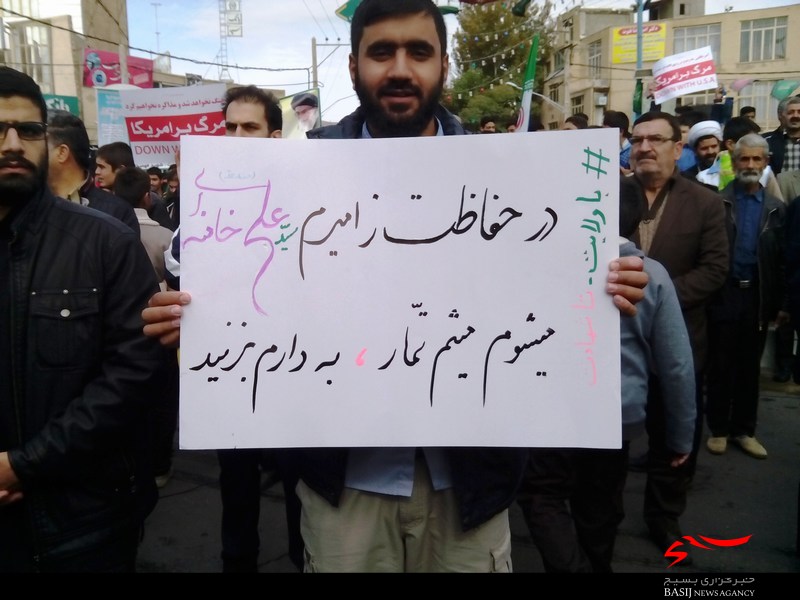 در حفاظت ز امیرم سیّد علی خامنه ای
میشوم میثم تمّار ، به دارم بزنید
# با ولایت - تا شهادت
مرگ بر امریکا
DOWN W
مرگ بر امریکا
WITH U.S.A
خبرگزاری بسیج
BASIJ NEWS AGANCY